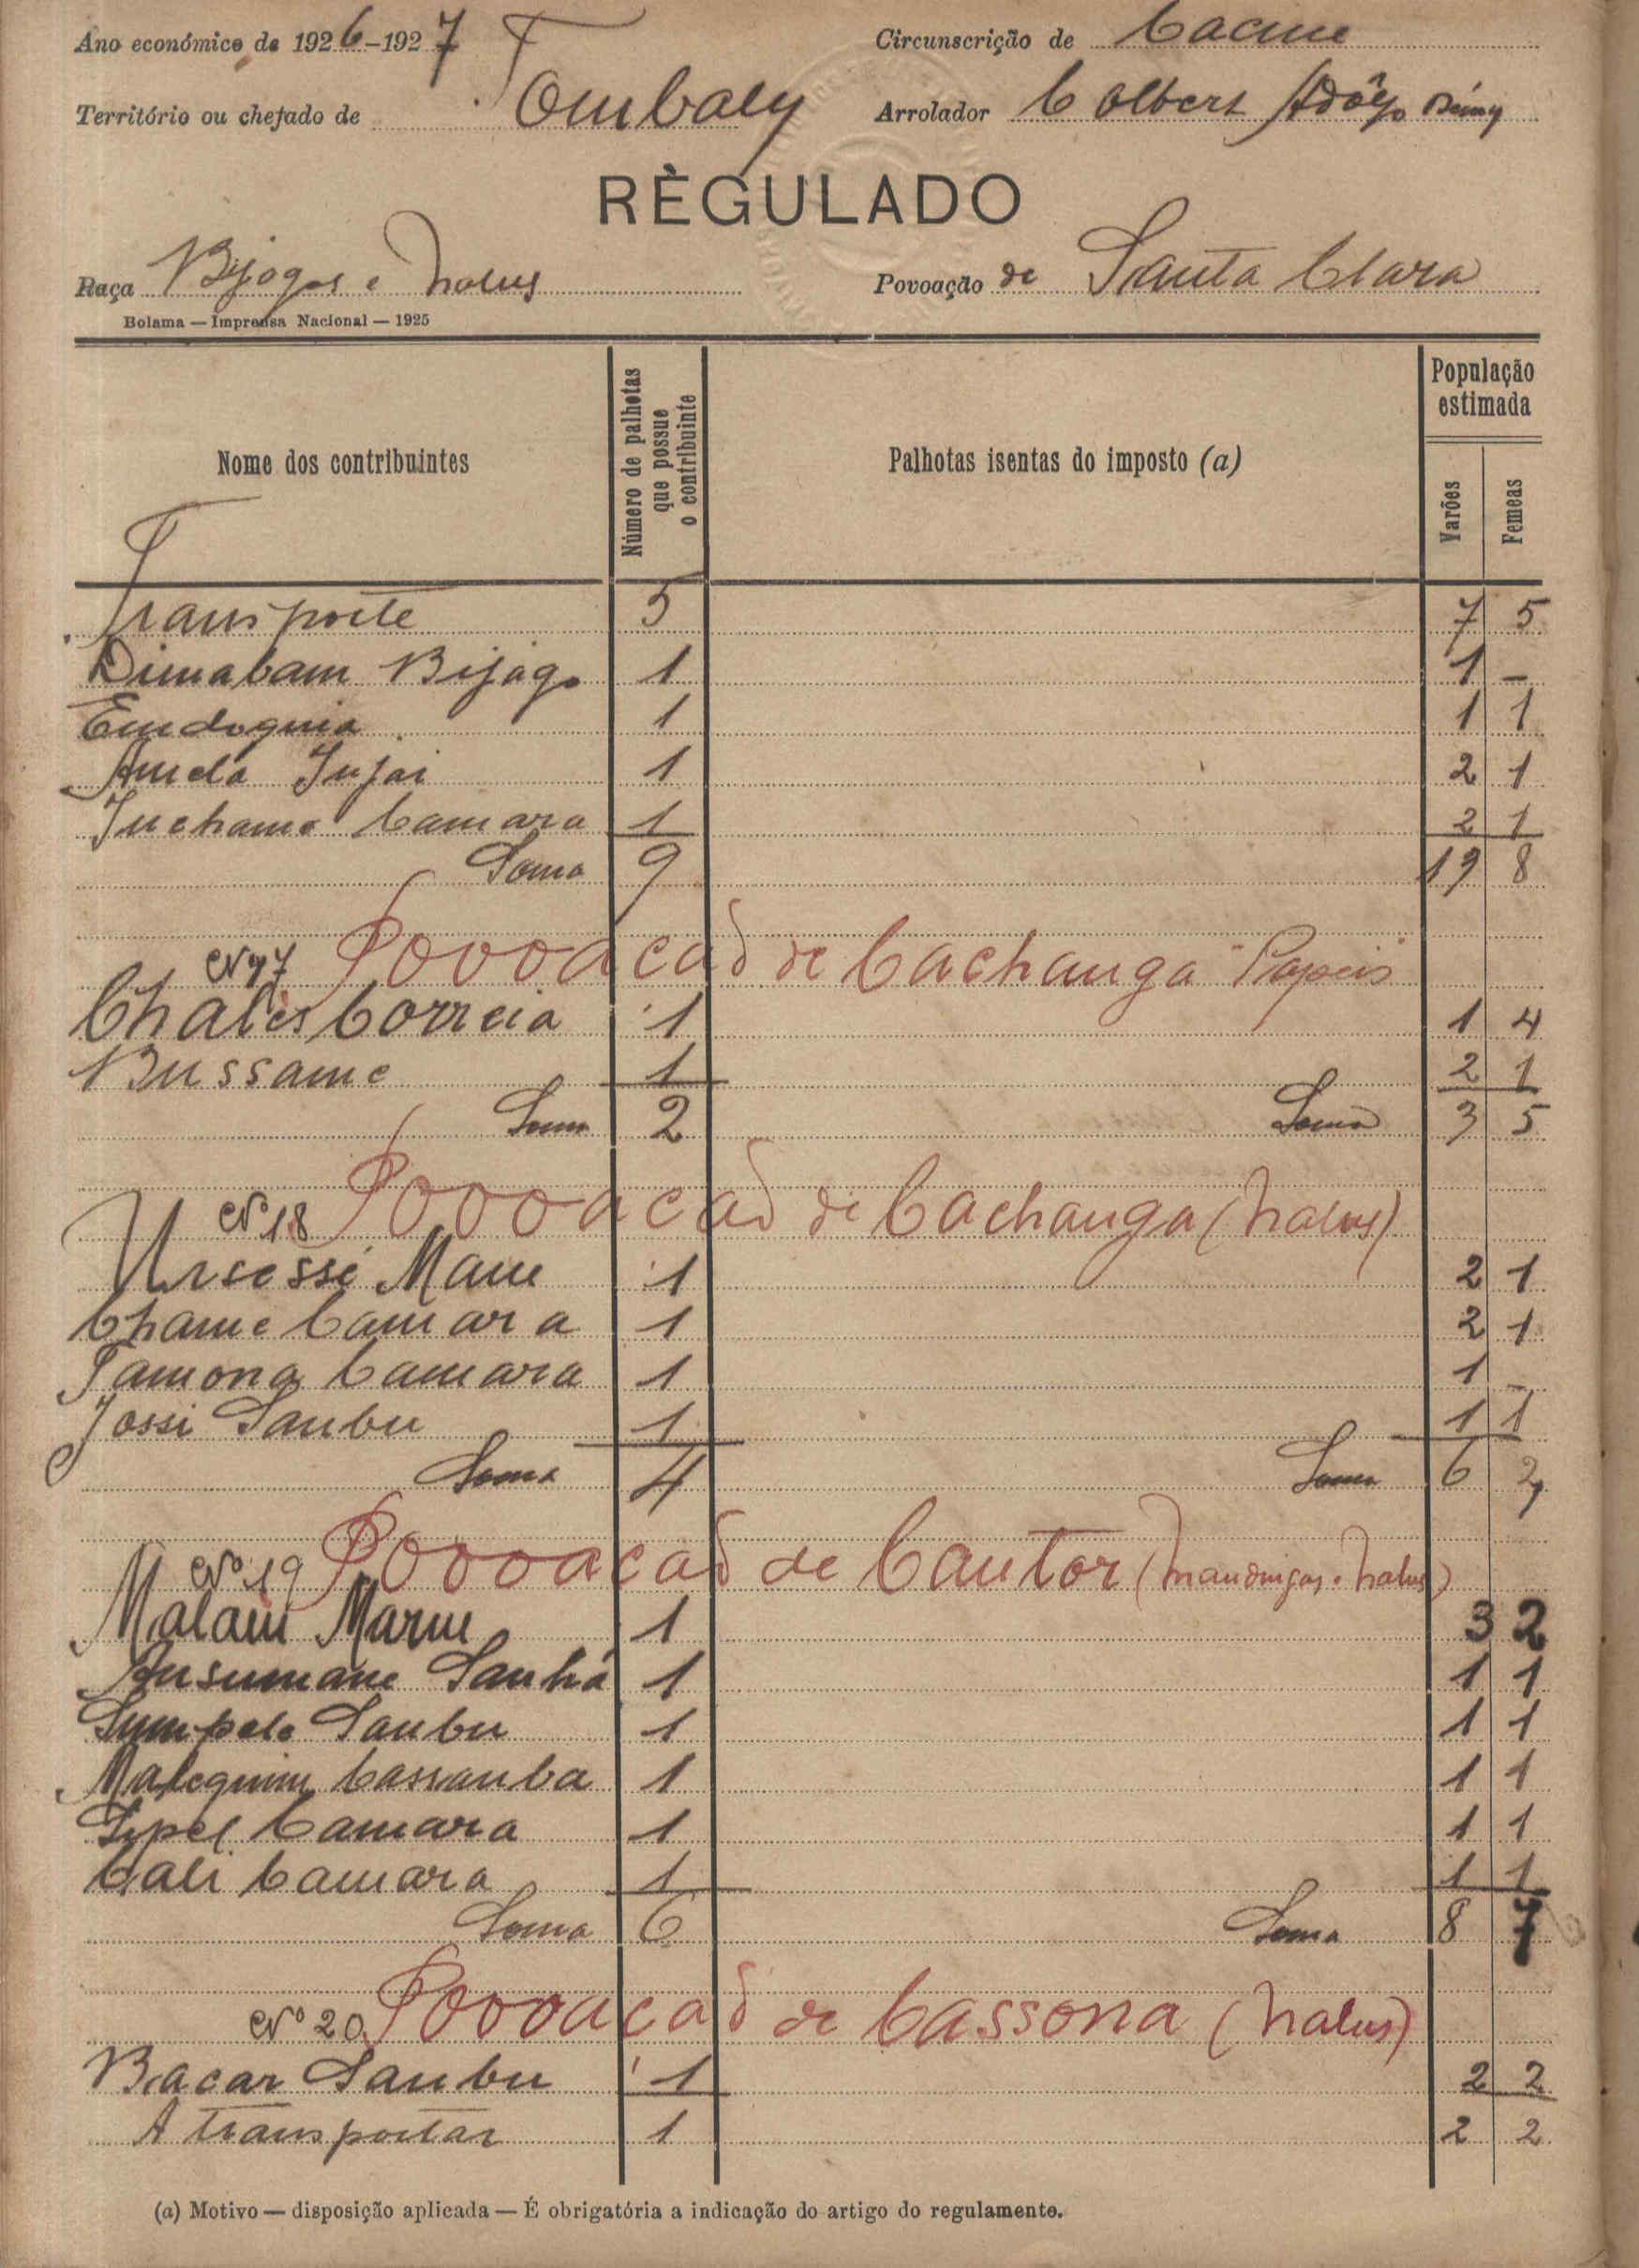 Ano económico de 1926-1927 Circunscrição de Cacine
Território ou chefado de Tombaly Arrolador Colbert
RÈGULADO
Raça Bijagos e Nalus Povoação de Santa Clara
Bolama — Imprensa Nacional — 1925
Nome dos contribuintes Número de palhotas que possue o contribuinte Palhotas isentas do imposto (a) População estimada
Varões Femeas
Transporte 5 7 5
Dimabam Bijago 1 1 -
Emdoguia 1 1 1
Amela Injai 1 2 1
Inchame Camara 1 2 1
Soma 9 19 8
Nº 17 Povoacão de Cachanga Papeis
Chales Correia 1 1 4
Bussame 1 2 1
Soma 2 Soma 3 5
Nº 18 Povoacão de Cachanga (Nalus)
Ursessé Mane 1 2 1
Chame Camara 1 2 1
Tamona Camara 1 1 -
Jossi Sambu 1 1 1
Soma 4 Soma 6
Nº 19 Povoacão de Cantor (Mandingas e Nalus)
Malam Mane 1 3 2
Ansumane Sanhá 1 1 1
Sumpelo Sambu 1 1 1
Maleguim Cassamba 1 1 1
Camara 1 1 1
Cali Camara 1 1 1
Soma 6 Soma 8 7
Nº 20 Povoacão de Cassona (Nalus)
Bacar Sambu 1 2 2
A transportar 1 2 2
(a) Motivo — disposição aplicada — É obrigatória a indicação do artigo do regulamento.